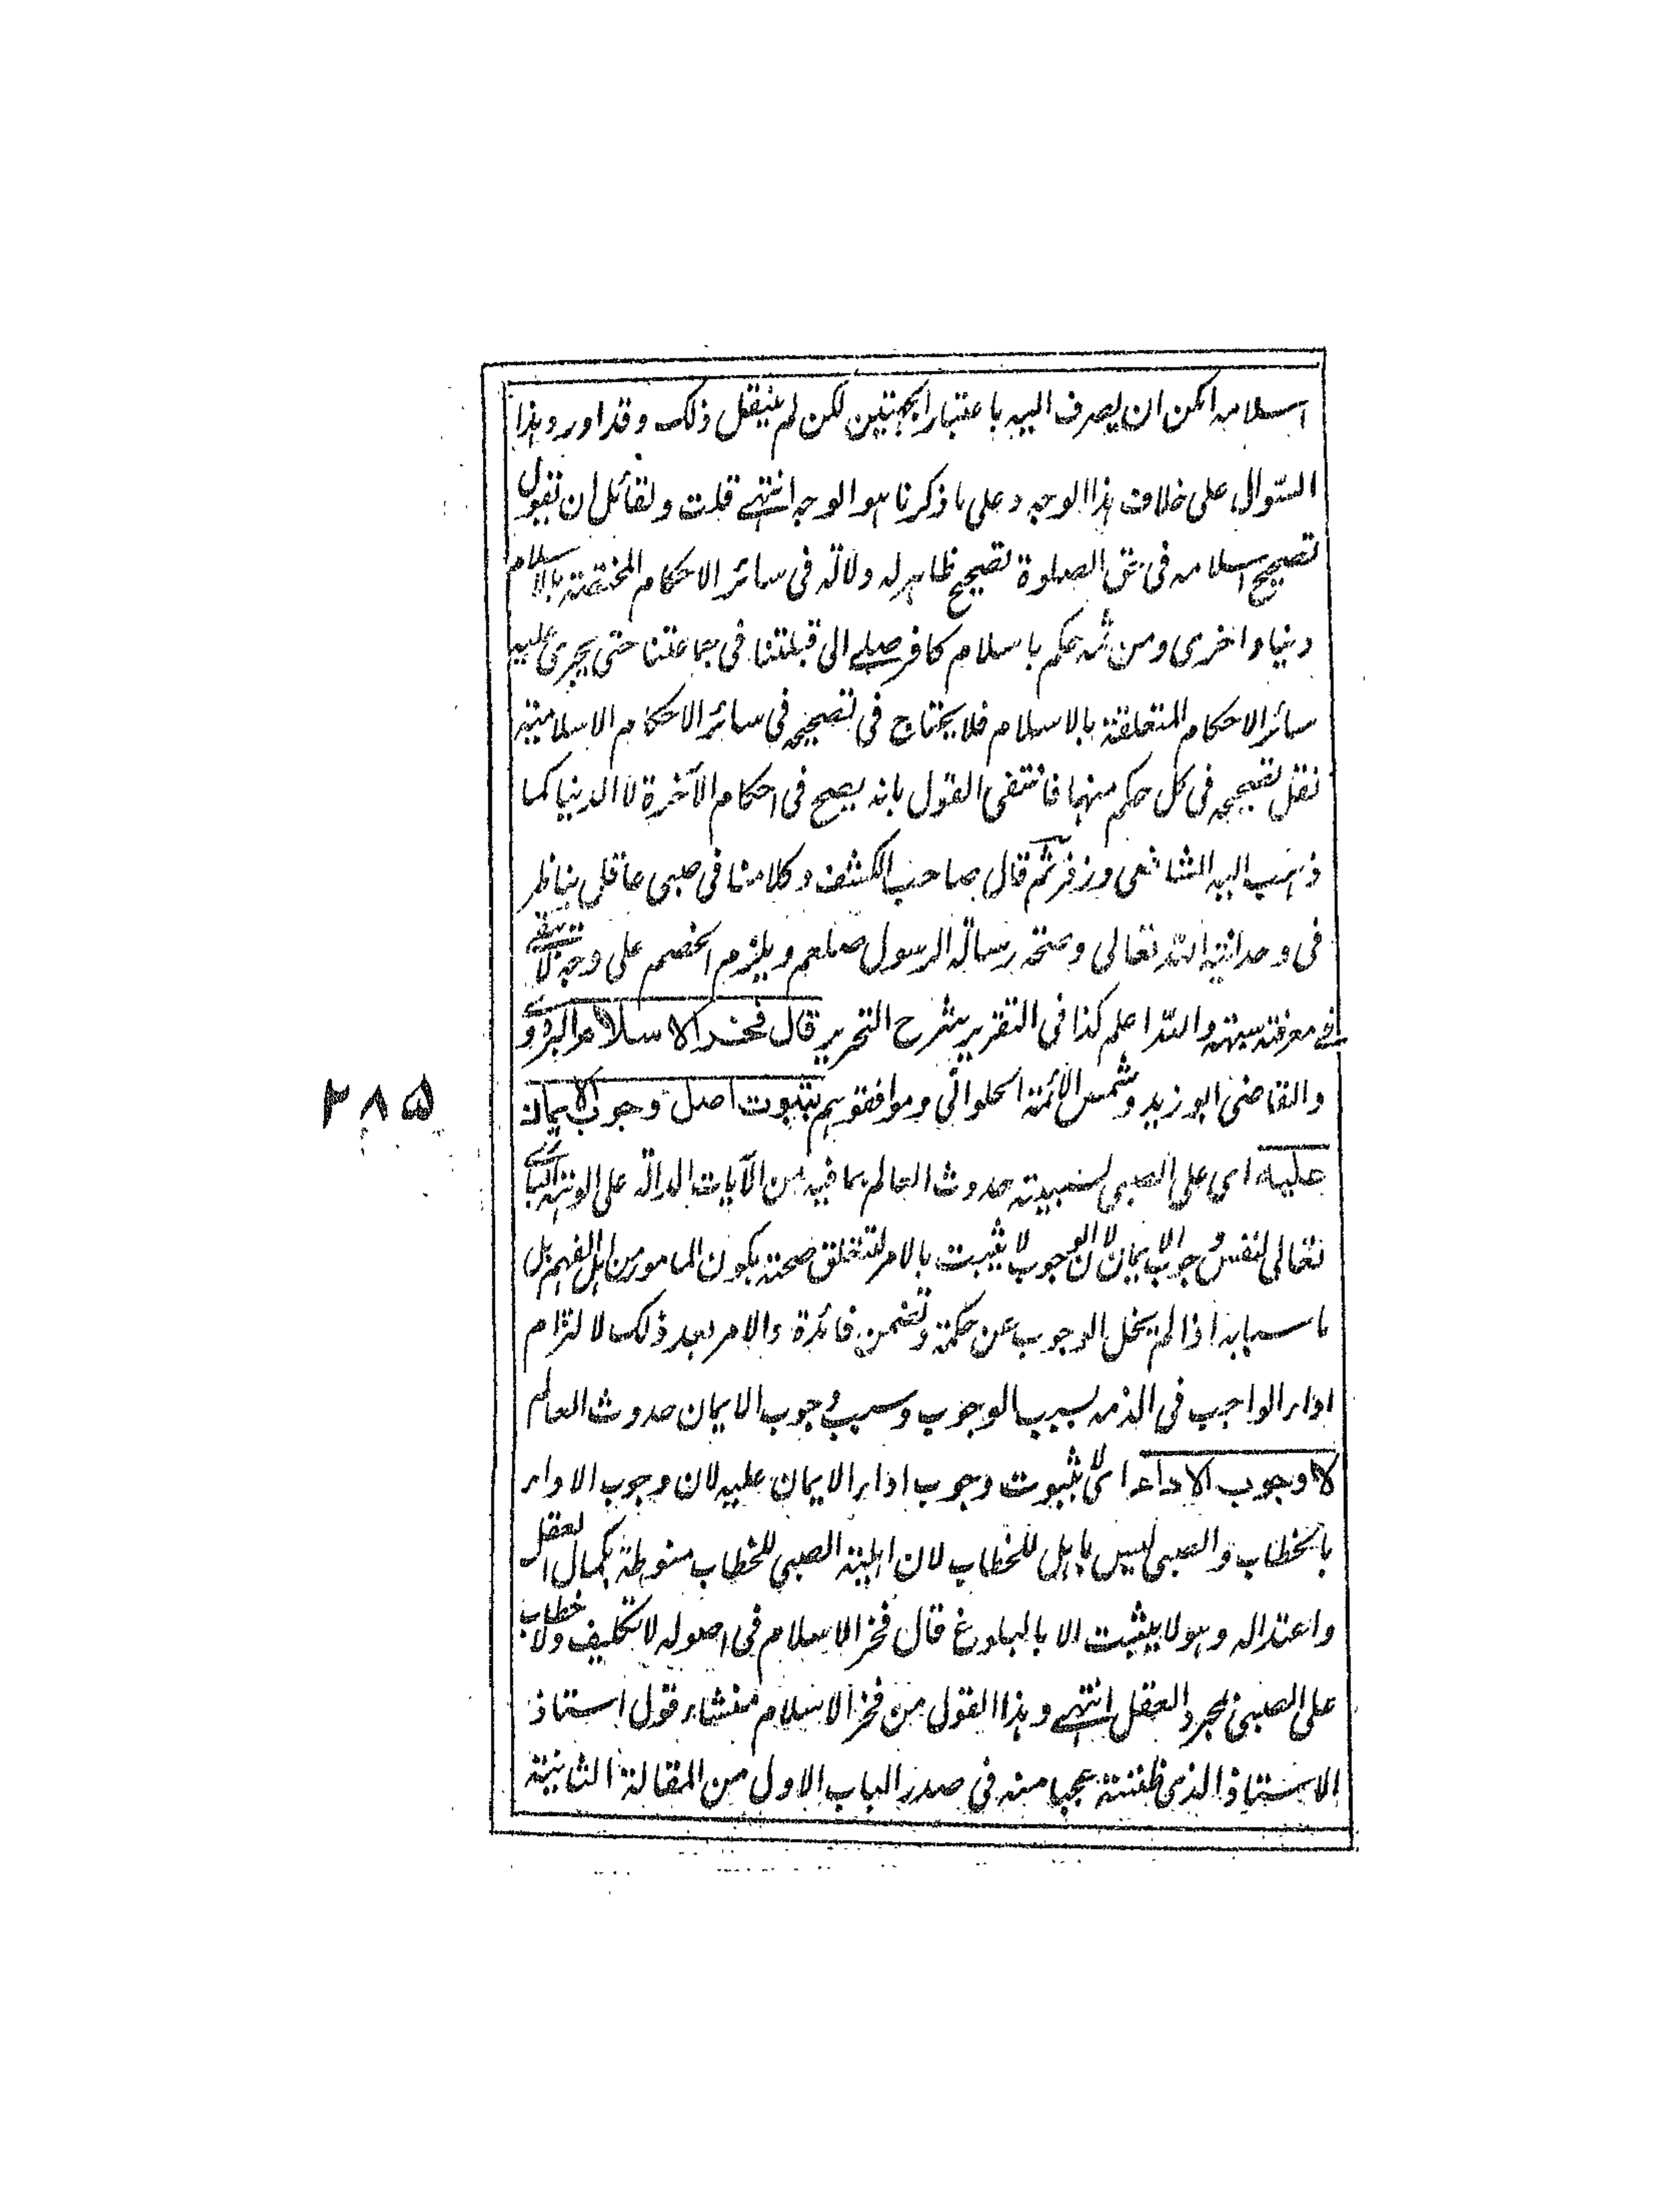 اسلامه امكن ان يصرف اليه باعتبار الجهتين لكن لم ينقل ذلك وقد اورد هذا
السوال على خلاف هذا الوجه وعلى ما ذكرنا هو الوجه انتهى قلت ولقائل ان يقول
تصحيح اسلامه فى حق الصلوة تصحيح ظاهر له ولالة فى سائر الاحكام المختصة بالاسلام
دنيا واخرى ومن ثمه حكم باسلام كافر صلى الى قبلتنا فى جماعتنا حتى يجرى عليه
سائر الاحكام المتعلقة بالاسلام فلا يحتاج فى تصحيحه فى سائر الاحكام الاسلامية
نقل تصحيحه فى كل حكم منها فانتفى القول بانه يصح فى احكام الآخرة لا الدنيا كما
ذهب اليه الشافعى وزفر ثم قال صاحب الكشف وكلامنا فى صبى عاقل يناظر
فى وحدانية الله تعالى وصحة رسالة الرسول صلعم ويلزم الخصم على وجه لا يبقى
فى معرفته شبهة والله اعلم كذا فى التقرير شرح التحرير قال فخر الاسلام البزدوى
والقاضى ابو زيد وشمس الائمة الحلوائى وموافقوهم بثبوت اصل وجوب الايمان
عليه اى على الصبى لسببية حدوث العالم بما فيه من الآيات الدالة على الوهية البارى
تعالى لنفس وجوب الايمان لان الوجوب لا يثبت بالامر لتتعلق صحته بكون المامور من اهل الفهم بل
باسبابه اذا لم يخل الوجوب عن حكمة وتضمن فائدة والامر بعد ذلك لالتزام
اداء الواجب فى الذمه بسبب الوجوب وسبب وجوب الايمان حدوث العالم
لا وجوب الاداء اى لا بثبوت وجوب اداء الايمان عليه لان وجوب الاداء
بالخطاب والصبى ليس باهل للخطاب لان اهلية الصبى للخطاب منوطة بكمال العقل
واعتداله وهو لا يثبت الا بالبلوغ قال فخر الاسلام فى اصوله لا تكليف ولا خطاب
على الصبى بمجرد العقل انتهى وهذا القول من فخر الاسلام منشاء قول استاذ
الاستاذ الذى ظننته عجبا منه فى صدر الباب الاول من المقالة الثانية
٢٨٥